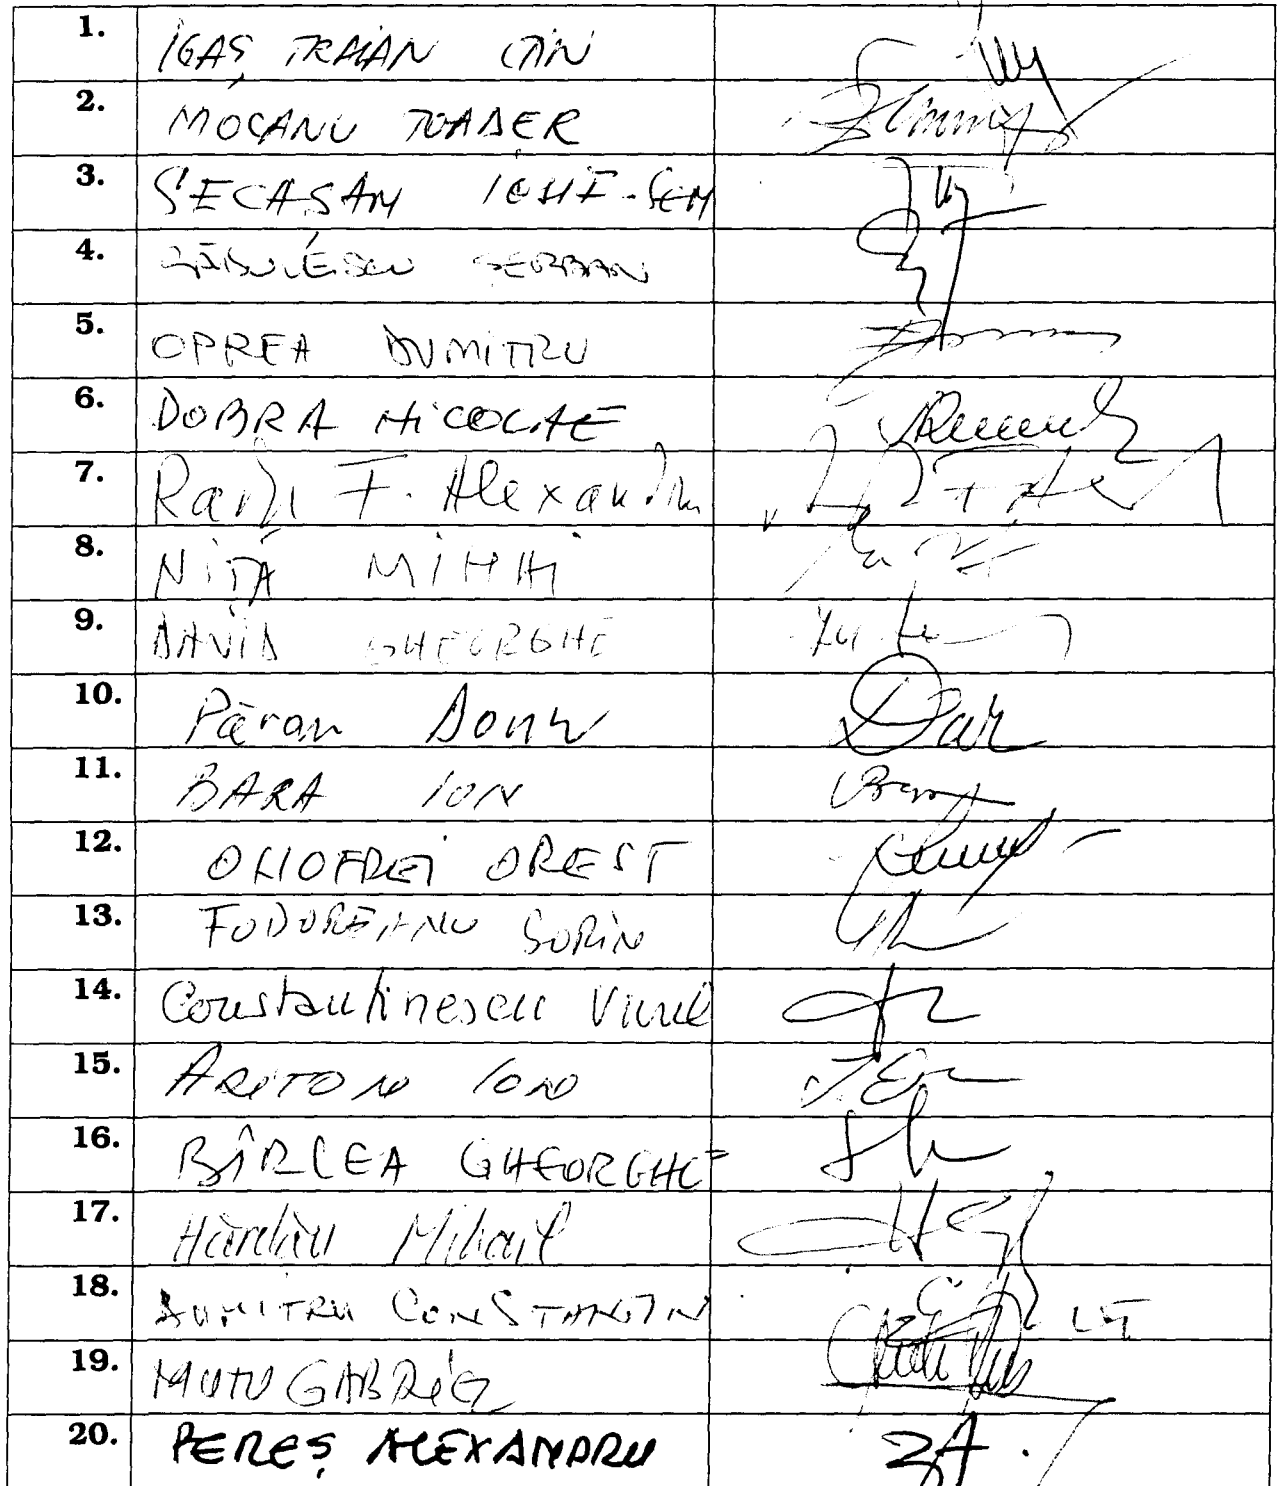 1. IGAȘ TRAIAN CTIN
2. MOCANU TOADER
3. SECAȘAN IOSIF-SEM
4. RĂDULESCU ȘERBAN
5. OPREA DUMITRU
6. DOBRA NICOLAE
7. F. Alexandru
8. NIȚĂ MIHAI
9. DAVID GHEORGHE
10. Păran Dorin
11. BARA ION
12. ONOFREI OREST
13. FODOREANU SORIN
14. Constantinescu Viorel
15. ARITON ION
16. BÎRLEA GHEORGHE
17. Hărdău Mihail
18. DUMITRU CONSTANTIN
19. MUTU GABRIEL
20. PEREȘ ALEXANDRU